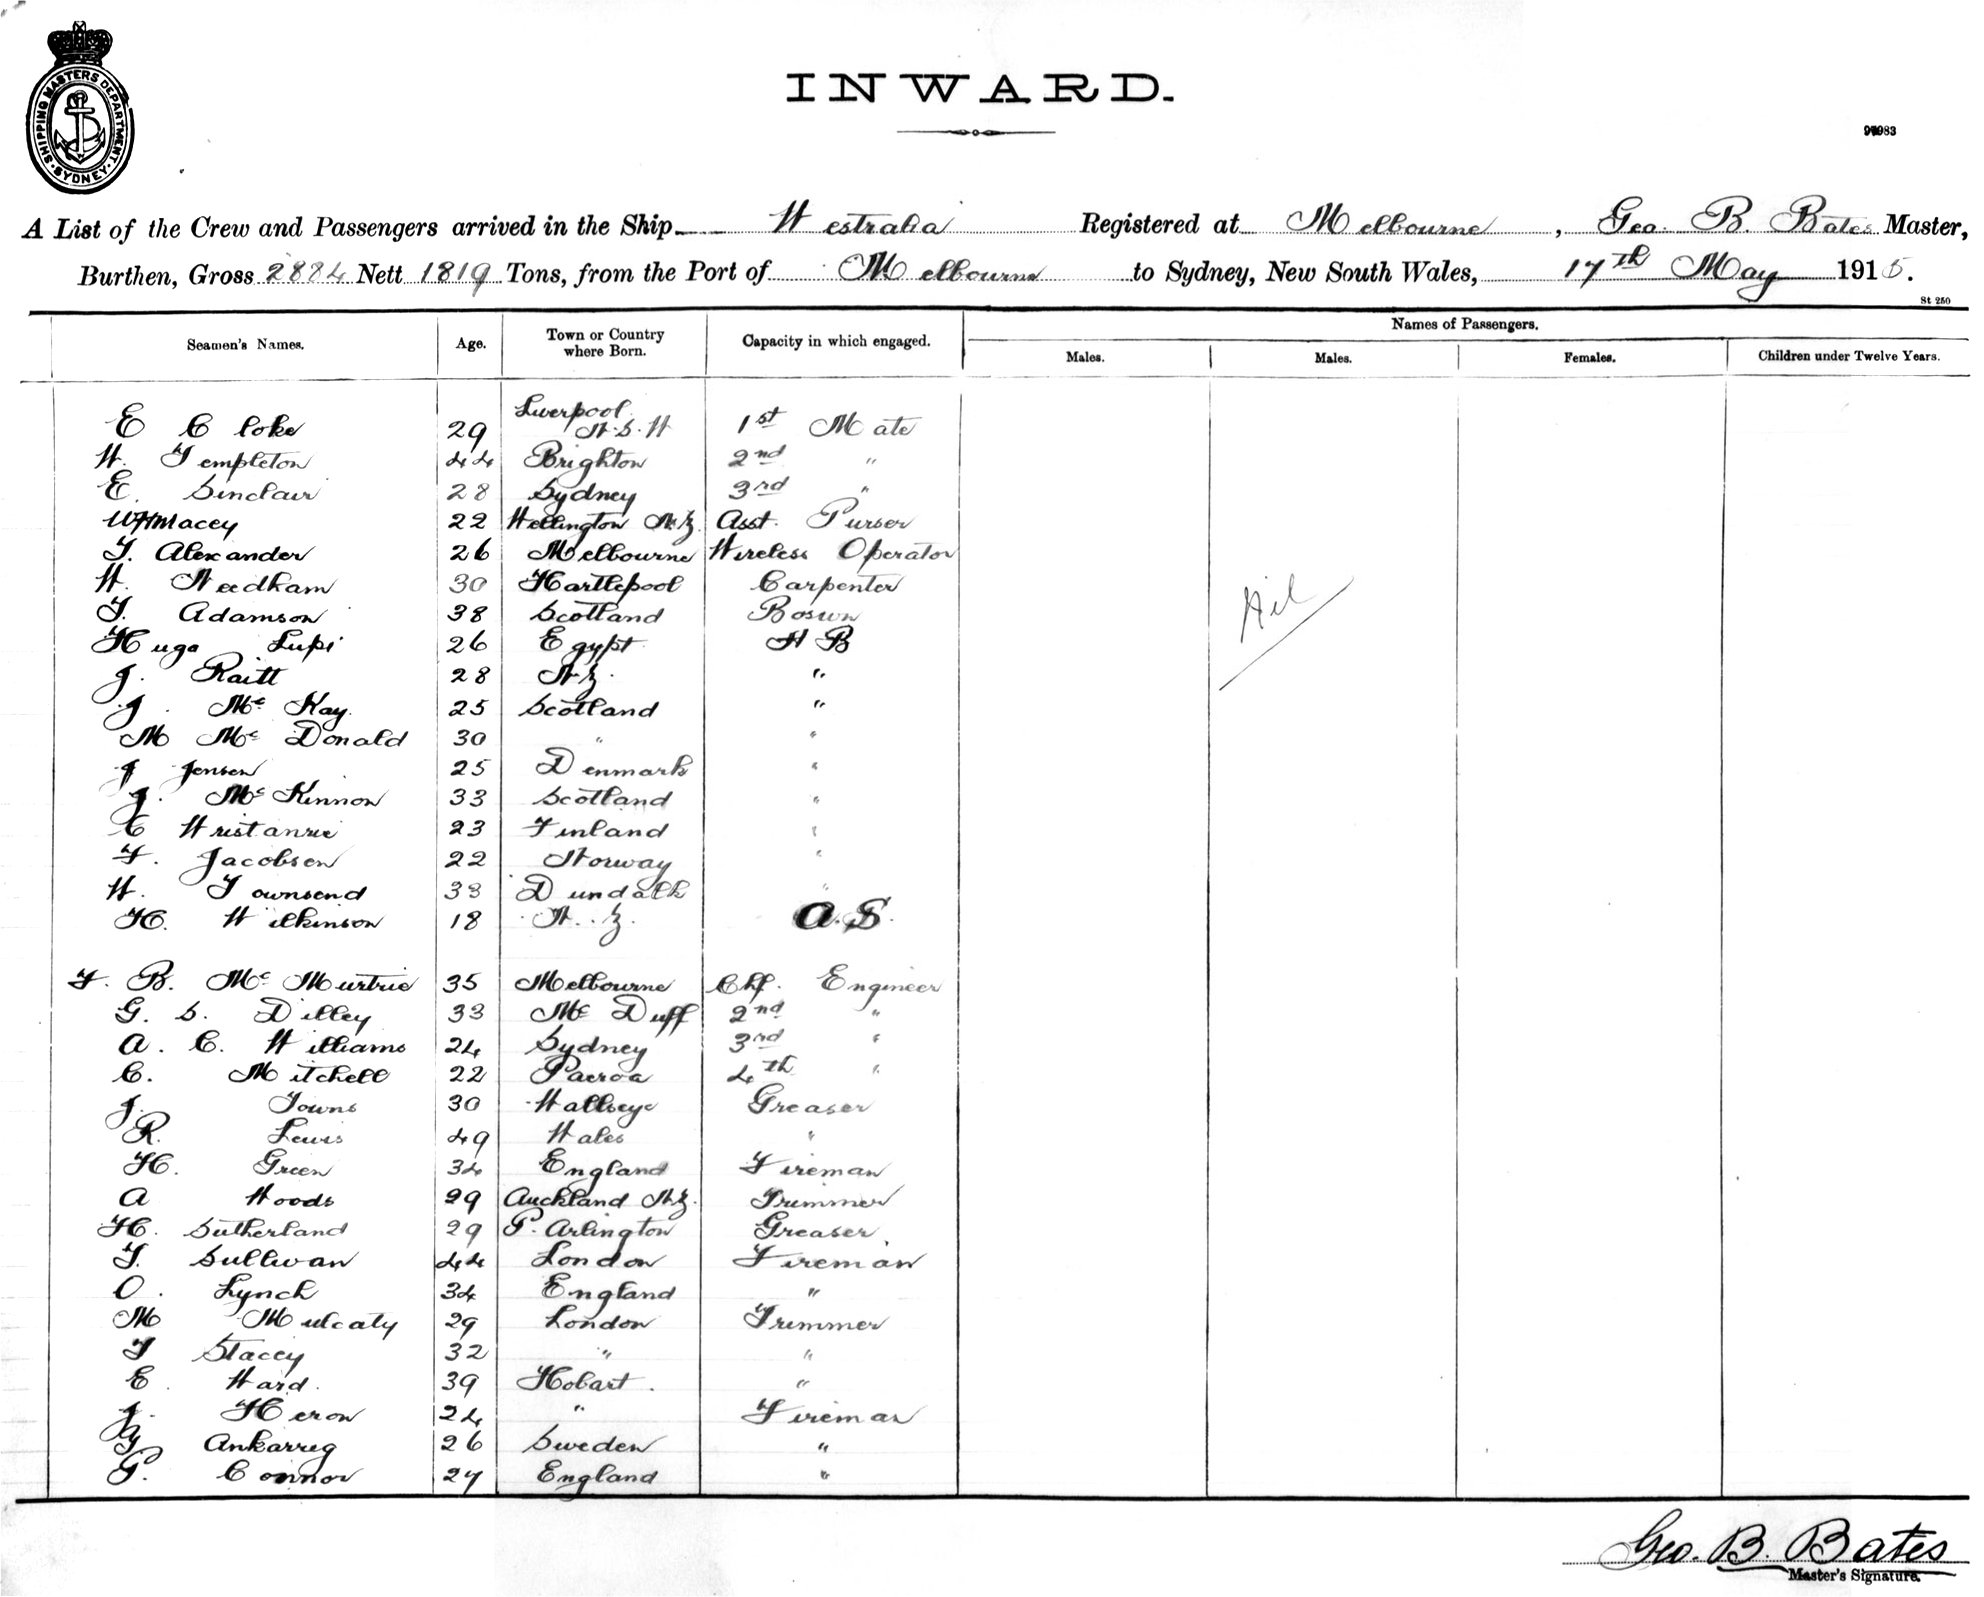 SHIPPING MASTERS DEPARTMENT. SYDNEY.
INWARD.
A List of the Crew and Passengers arrived in the Ship Westralia Registered at Melbourne, Geo. B. Bates Master,
Burthen, Gross 2884 Nett 1819 Tons, from the Port of Melbourne to Sydney, New South Wales, 17th May 1915.
St 250
Names of Passengers.
Seamen's Names. Age. Town or Country where Born. Capacity in which engaged. Males. Males. Females. Children under Twelve Years.
E Cloke 29 Liverpool N.S.W 1st Mate
W. Templeton 44 Brighton 2nd "
E. Sinclair 28 Sydney 3rd "
WH Macey 22 Wellington N.Z. Asst. Purser
T. Alexander 26 Melbourne Wireless Operator
W. Needham 30 Hartlepool Carpenter
T. Adamson 38 Scotland Bosun
Hugo Lupi 26 Egypt A B
J. Raitt 28 N.Z. "
J. McKay 25 Scotland "
M McDonald 30 " "
J Jensen 25 Denmark "
J. McKinnon 33 Scotland "
C 23 Finland "
F. Jacobsen 22 Norway "
W. Townsend 33 Dundalk "
H. Wilkinson 18 N.Z. O.S.
Nil
F. B. McMurtrie 35 Melbourne Chf. Engineer
G. S. Dilley 33 McDuff 2nd "
A. C. Williams 24 Sydney 3rd "
C. Mitchell 22 Paeroa 4th "
J. Towns 30 Greaser
R. Lewis 49 Wales "
H. Green 34 England Fireman
A Woods 29 Auckland N.Z. Trimmer
H. Sutherland 29 P. Arlington Greaser
T. Sullivan 44 London Fireman
O. Lynch 34 England "
M Mulcaty 29 London Trimmer
T Stacey 32 " "
E. Ward. 39 Hobart. "
J. Heron 24 " Fireman
G Ankarreg 26 Sweden "
P. Connor 27 England "
Geo. B. Bates
Master's Signature.